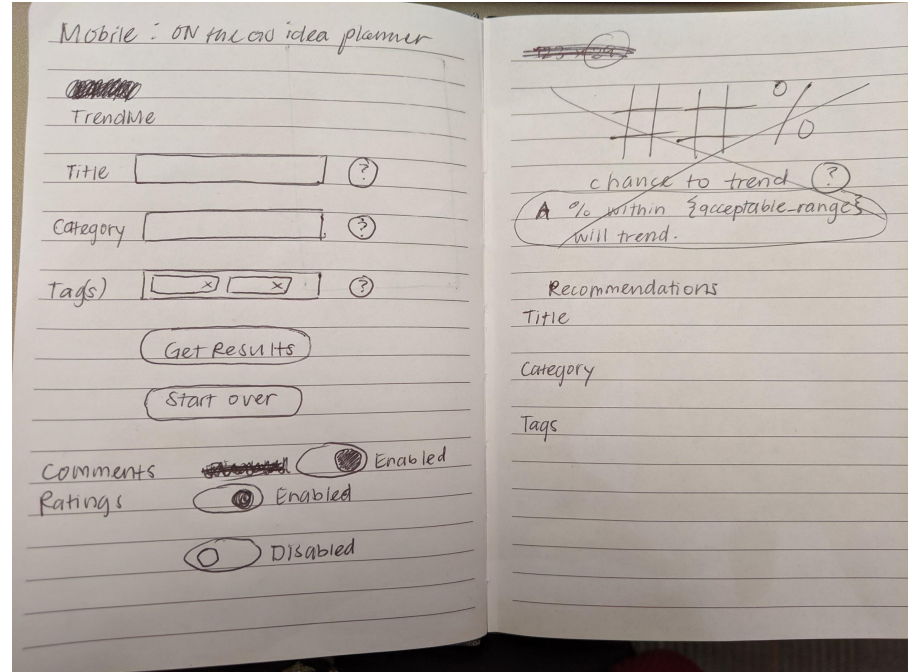 Mobile : ON the GO idea planner
TrendMe
Title ?
Category ?
Tag(s) x x ?
Get Results
Start over
Comments Enabled
Ratings Enabled
Disabled
##%
chance to trend ?
A % within {acceptable_range}
will trend.
Recommendations
Title
Category
Tags